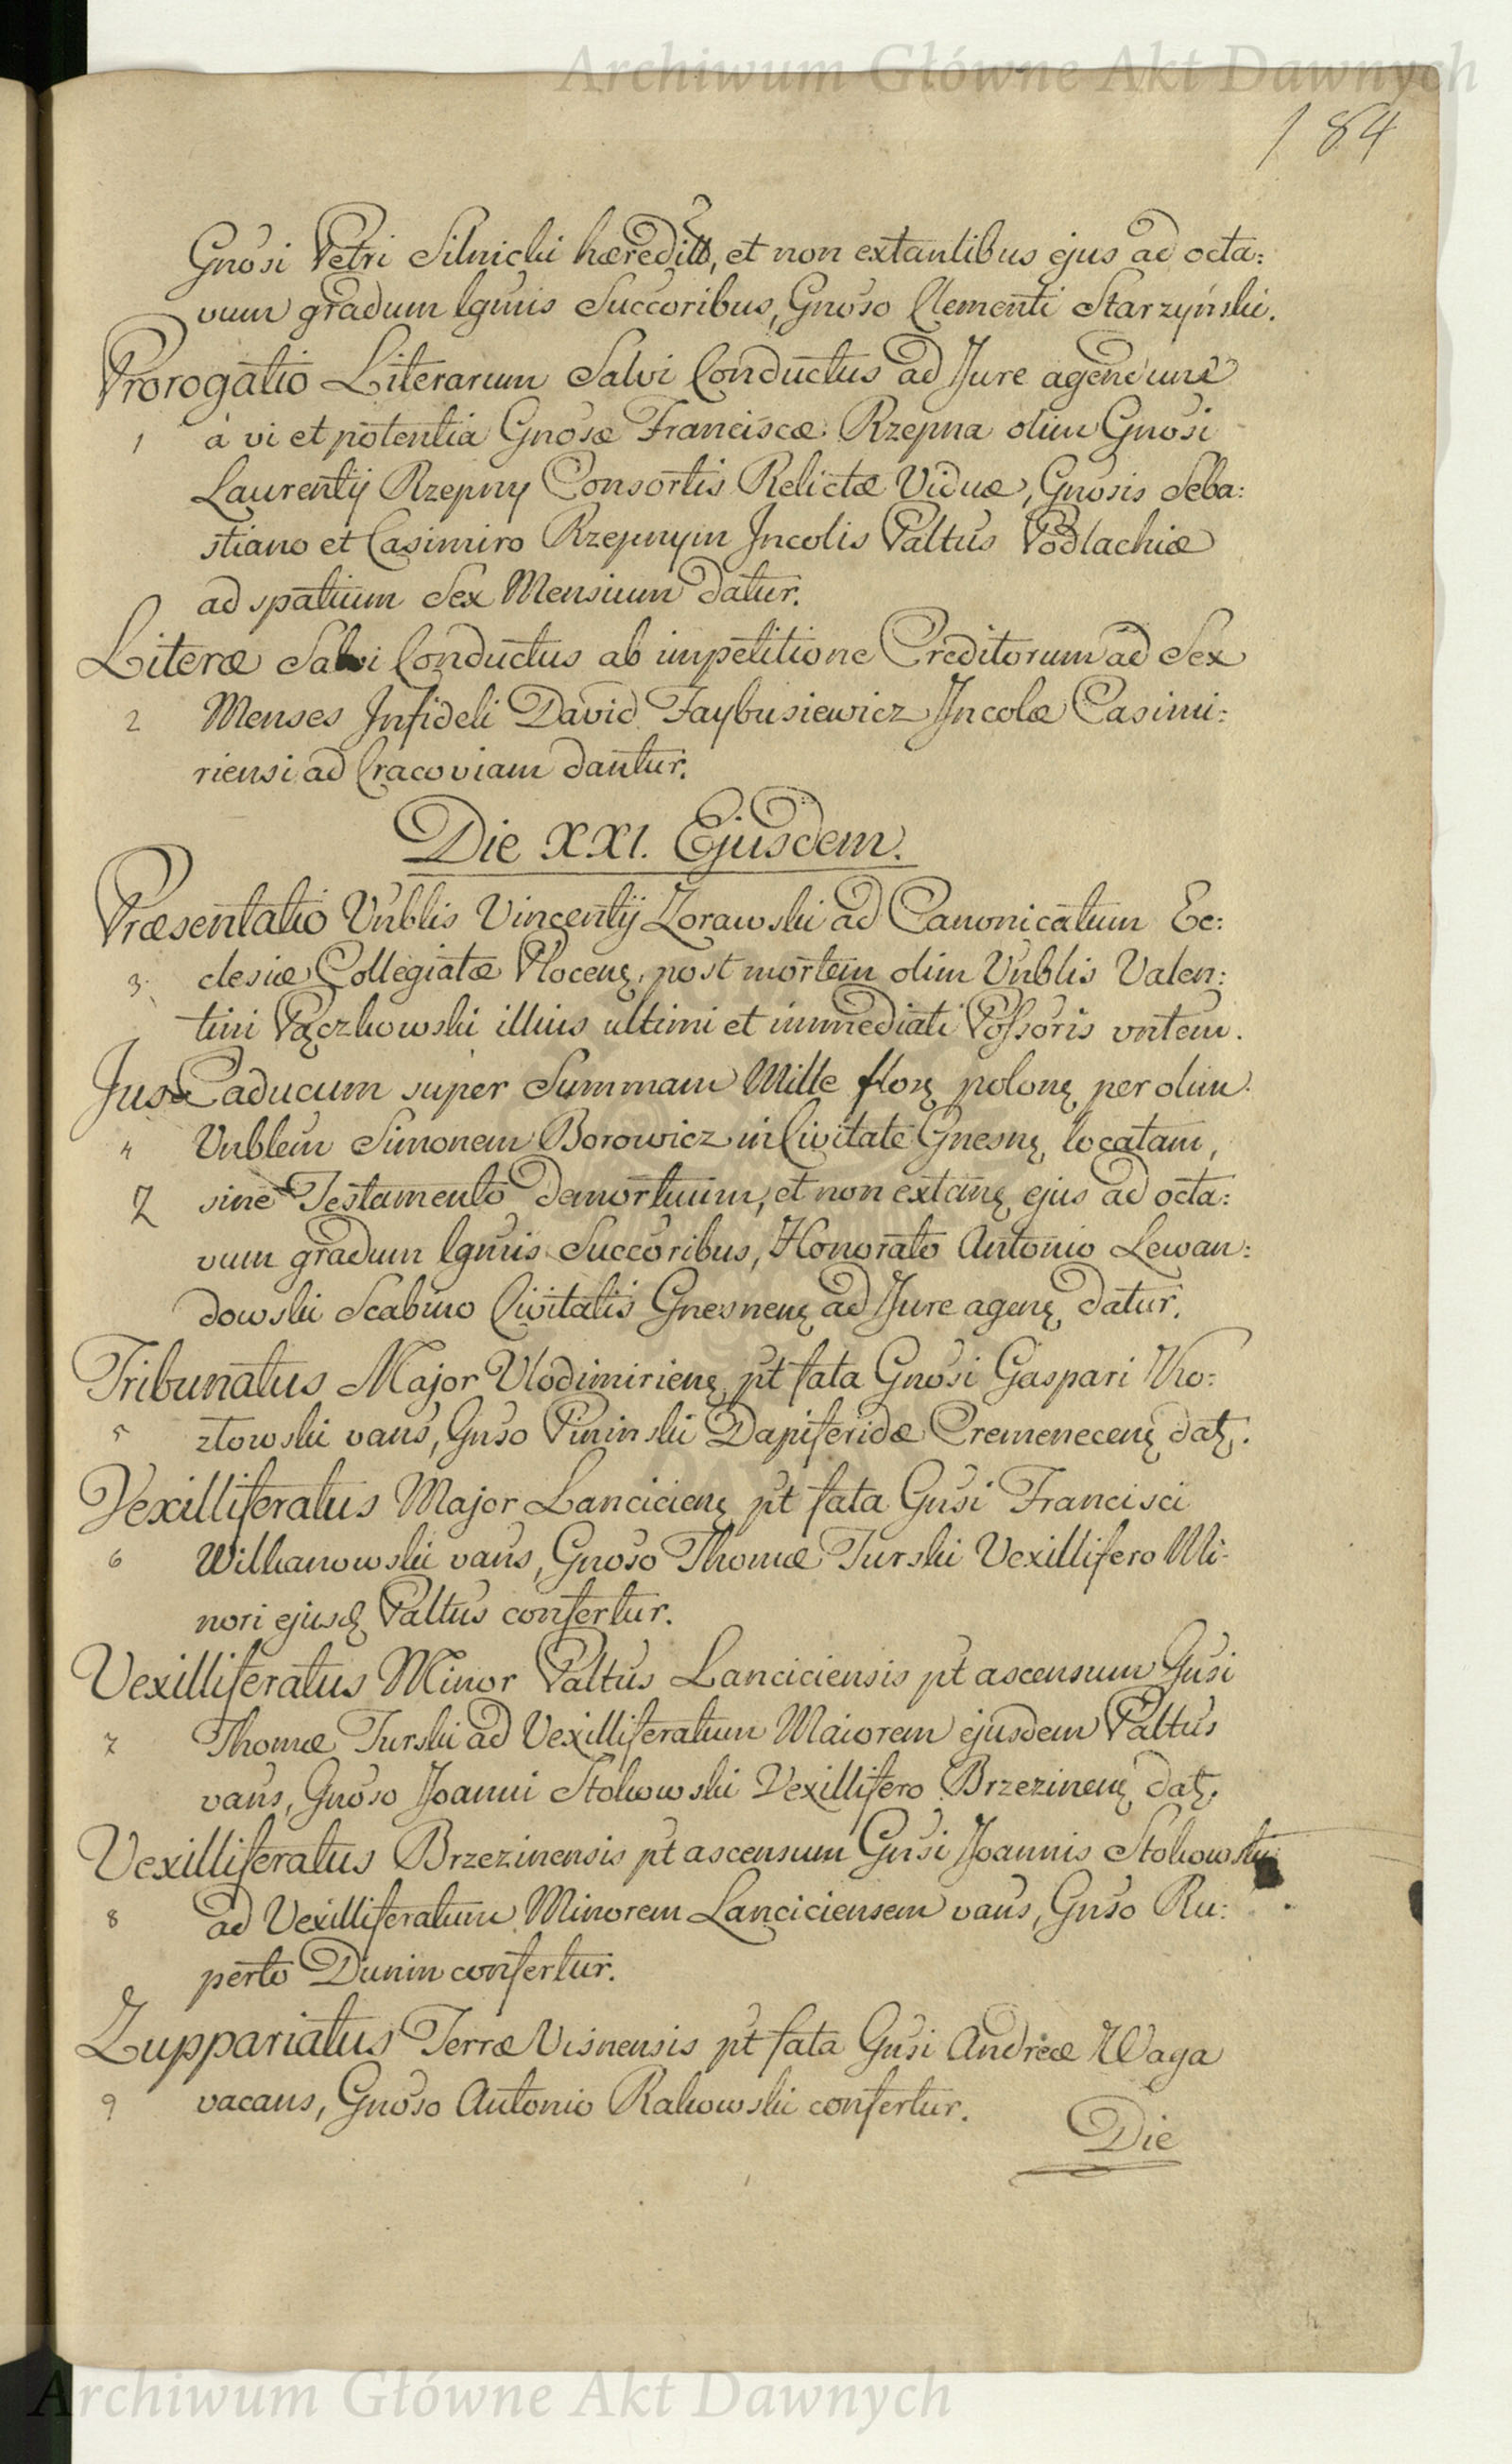 Archiwum Główne Akt Dawnych
184
Gnosi Petri Silnicki hæredit, et non extantibus ejus ad octa:
vum gradum lgmis Succoribus, Gnoso Clementi Starzyński.
Prorogatio Literarum Salvi Conductus ad Jure agendum
1 à vi et potentia Gnosæ Franciscæ Rzepna olim Gnosi
Laurentij Rzepny Consortis Relictæ Viduæ, Gnosis Seba:
stiano et Casimiro Rzepnym Incolis Paltus Podlachiæ
ad spatium Sex Mensium datur.
Literæ Salvi Conductus ab impetitione Creditorum ad Sex
2 Menses Infideli David Faybusiewicz Incolæ Casimi:
riensi ad Cracoviam dantur.
Die XXI. Ejusdem.
Præsentatio Vnblis Vincentij Zorawski ad Canonicatum Ec:
3 clesiæ Collegiatæ Plocenę, post mortem olim Vnblis Valen:
tini Pączkowski illius ultimi et immediati Possoris vntem.
Jus Caducum super Summam Mille florę polonę per olim
4 Vnblem Simonem Borowicz in Civitate Gnesnę locatam,
Z sine Testamento demortuum, et non extanę ejus ad octa:
vum gradum lgmis Succoribus, Honorato Antonio Lewan:
dowski Scabino Civitatis Gnesnenę ad Jure agenę datur.
Tribunatus Major Vlodimirienę pt fata Gnosi Gaspari Ko:
5 ztowski vans, Gnso Pininski Dapiferidæ Cremenecenę datę.
Vexilliferatus Major Lancicienę pt fata Gnsi Francisci
6 Wilkanowski vans, Gnoso Thomæ Turski Vexillifero Mi-
nori ejusdę Paltus confertur.
Vexilliferatus Minor Paltus Lanciciensis pt ascensum Gnsi
7 Thomæ Turski ad Vexilliferatum Maiorem ejusdem Paltus
vans, Gnoso Joanni Stokowski Vexillifero Brzezinenę datę.
Vexilliferatus Brzezinensis pt ascensum Gnsi Joannis Stokowski
8 ad Vexilliferatum Minorem Lanciciensem vans, Gnso Ru:
perto Dunin confertur.
Zuppariatus Terræ Visnensis pt fata Gnsi Andreæ Waga
9 vacans, Gnoso Antonio Rakowski confertur.
Die
Archiwum Główne Akt Dawnych